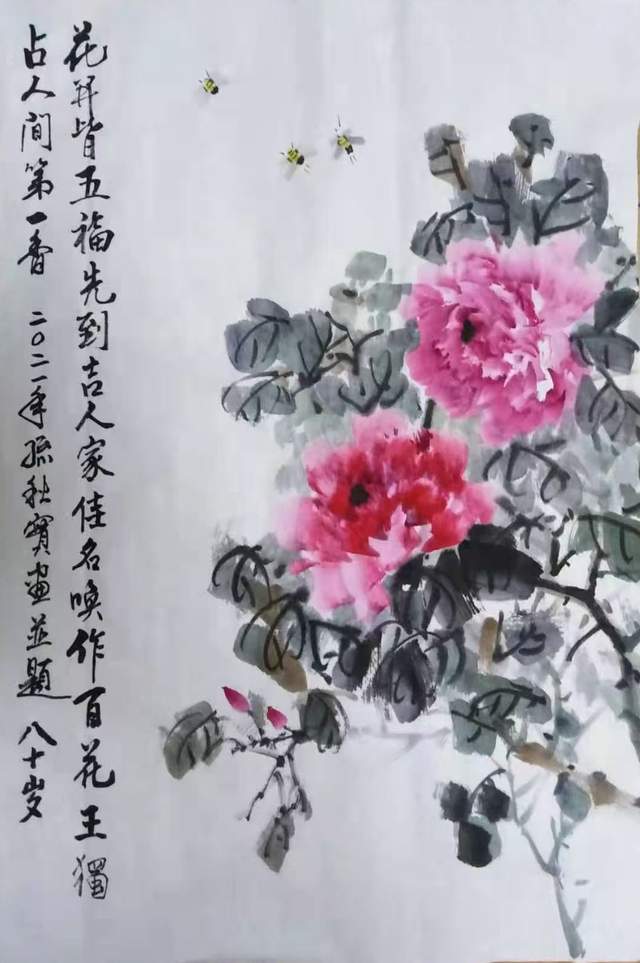 花开皆五福先到吉人家佳名唤作百花王獨
占人间第一香 二〇二一年 秋實画並題 八十岁